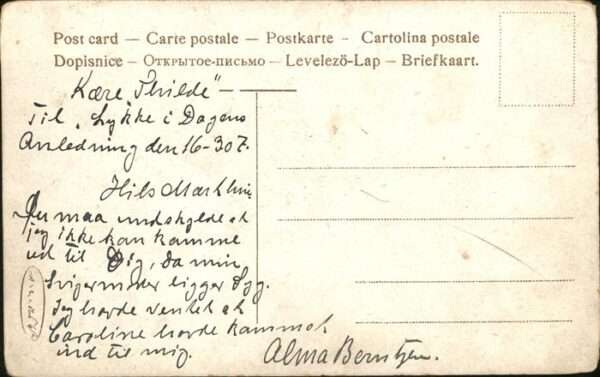 Post card — Carte postale — Postkarte — Cartolina postale
Dopisnice — Открытое-письмо — Levelező-Lap — Briefkaart.
Kære „Thilde"
Til „Lykke i Dagens
Anledning den 16-3 07.
Hils
Du maa undskylde at
jeg ikke kan komme
ud til Dig, da min
Svigermoder ligger Syg.
Jeg havde ventet at
Caroline havde kommet
ind til mig.
Alma Berntzen.